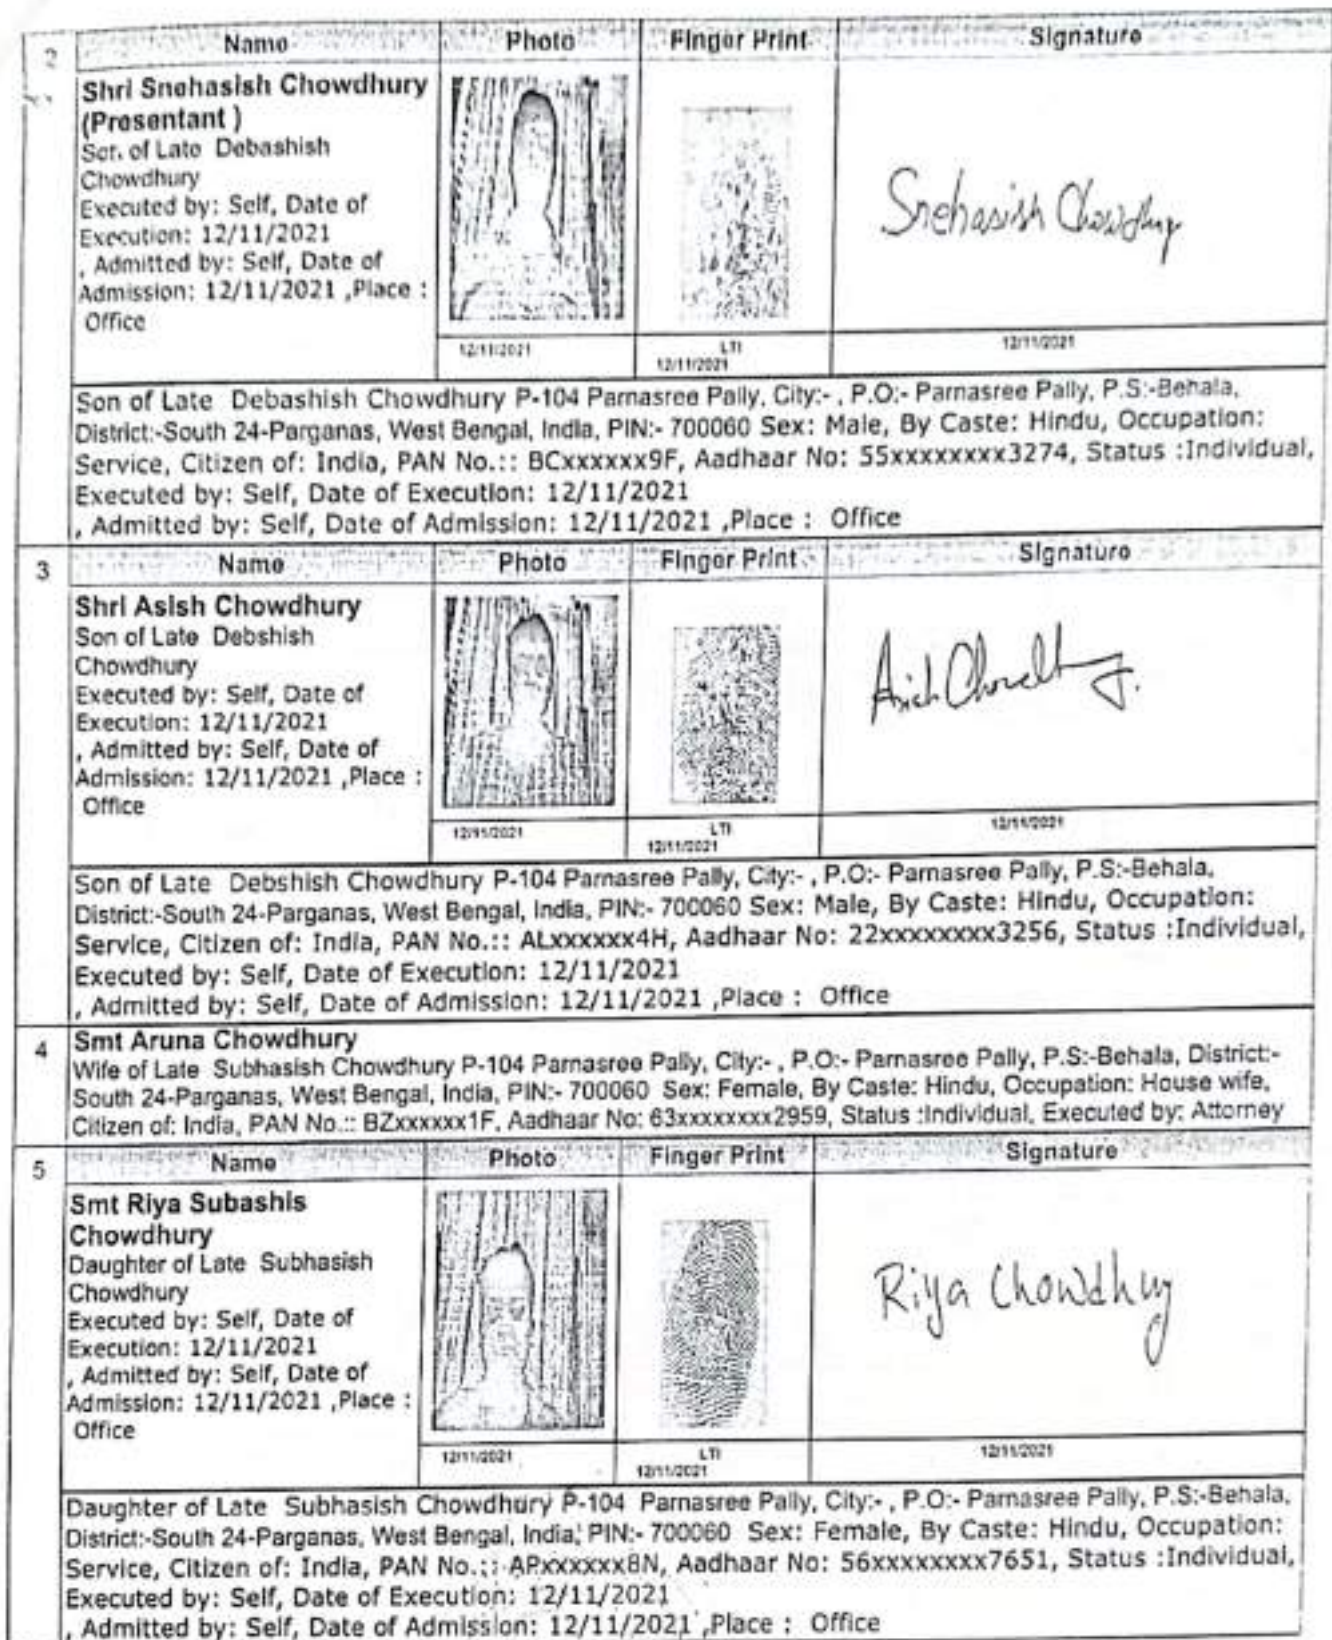 2
Name Photo Finger Print Signature
Shri Snehasish Chowdhury
(Presentant )
Son of Late Debashish
Chowdhury
Executed by: Self, Date of
Execution: 12/11/2021
, Admitted by: Self, Date of
Admission: 12/11/2021 ,Place :
Office
Snehasish Chowdhury
12/11/2021
LTI
12/11/2021
12/11/2021
Son of Late Debashish Chowdhury P-104 Parnasree Pally, City:- , P.O:- Parnasree Pally, P.S:-Behala,
District:-South 24-Parganas, West Bengal, India, PIN:- 700060 Sex: Male, By Caste: Hindu, Occupation:
Service, Citizen of: India, PAN No.:: BCxxxxxx9F, Aadhaar No: 55xxxxxxxx3274, Status :Individual,
Executed by: Self, Date of Execution: 12/11/2021
, Admitted by: Self, Date of Admission: 12/11/2021 ,Place : Office
3
Name Photo Finger Print Signature
Shri Asish Chowdhury
Son of Late Debshish
Chowdhury
Executed by: Self, Date of
Execution: 12/11/2021
, Admitted by: Self, Date of
Admission: 12/11/2021 ,Place :
Office
Asish Chowdhury
12/11/2021
LTI
12/11/2021
12/11/2021
Son of Late Debshish Chowdhury P-104 Parnasree Pally, City:- , P.O:- Parnasree Pally, P.S:-Behala,
District:-South 24-Parganas, West Bengal, India, PIN:- 700060 Sex: Male, By Caste: Hindu, Occupation:
Service, Citizen of: India, PAN No.:: ALxxxxxx4H, Aadhaar No: 22xxxxxxxx3256, Status :Individual,
Executed by: Self, Date of Execution: 12/11/2021
, Admitted by: Self, Date of Admission: 12/11/2021 ,Place : Office
4
Smt Aruna Chowdhury
Wife of Late Subhasish Chowdhury P-104 Parnasree Pally, City:- , P.O:- Parnasree Pally, P.S:-Behala, District:-
South 24-Parganas, West Bengal, India, PIN:- 700060 Sex: Female, By Caste: Hindu, Occupation: House wife,
Citizen of: India, PAN No.:: BZxxxxxx1F, Aadhaar No: 63xxxxxxxx2959, Status :Individual, Executed by: Attorney
5
Name Photo Finger Print Signature
Smt Riya Subashis
Chowdhury
Daughter of Late Subhasish
Chowdhury
Executed by: Self, Date of
Execution: 12/11/2021
, Admitted by: Self, Date of
Admission: 12/11/2021 ,Place :
Office
Riya Chowdhury
12/11/2021
LTI
12/11/2021
12/11/2021
Daughter of Late Subhasish Chowdhury P-104 Parnasree Pally, City:- , P.O:- Parnasree Pally, P.S:-Behala,
District:-South 24-Parganas, West Bengal, India, PIN:- 700060 Sex: Female, By Caste: Hindu, Occupation:
Service, Citizen of: India, PAN No.:: APxxxxxx8N, Aadhaar No: 56xxxxxxxx7651, Status :Individual,
Executed by: Self, Date of Execution: 12/11/2021
, Admitted by: Self, Date of Admission: 12/11/2021 ,Place : Office